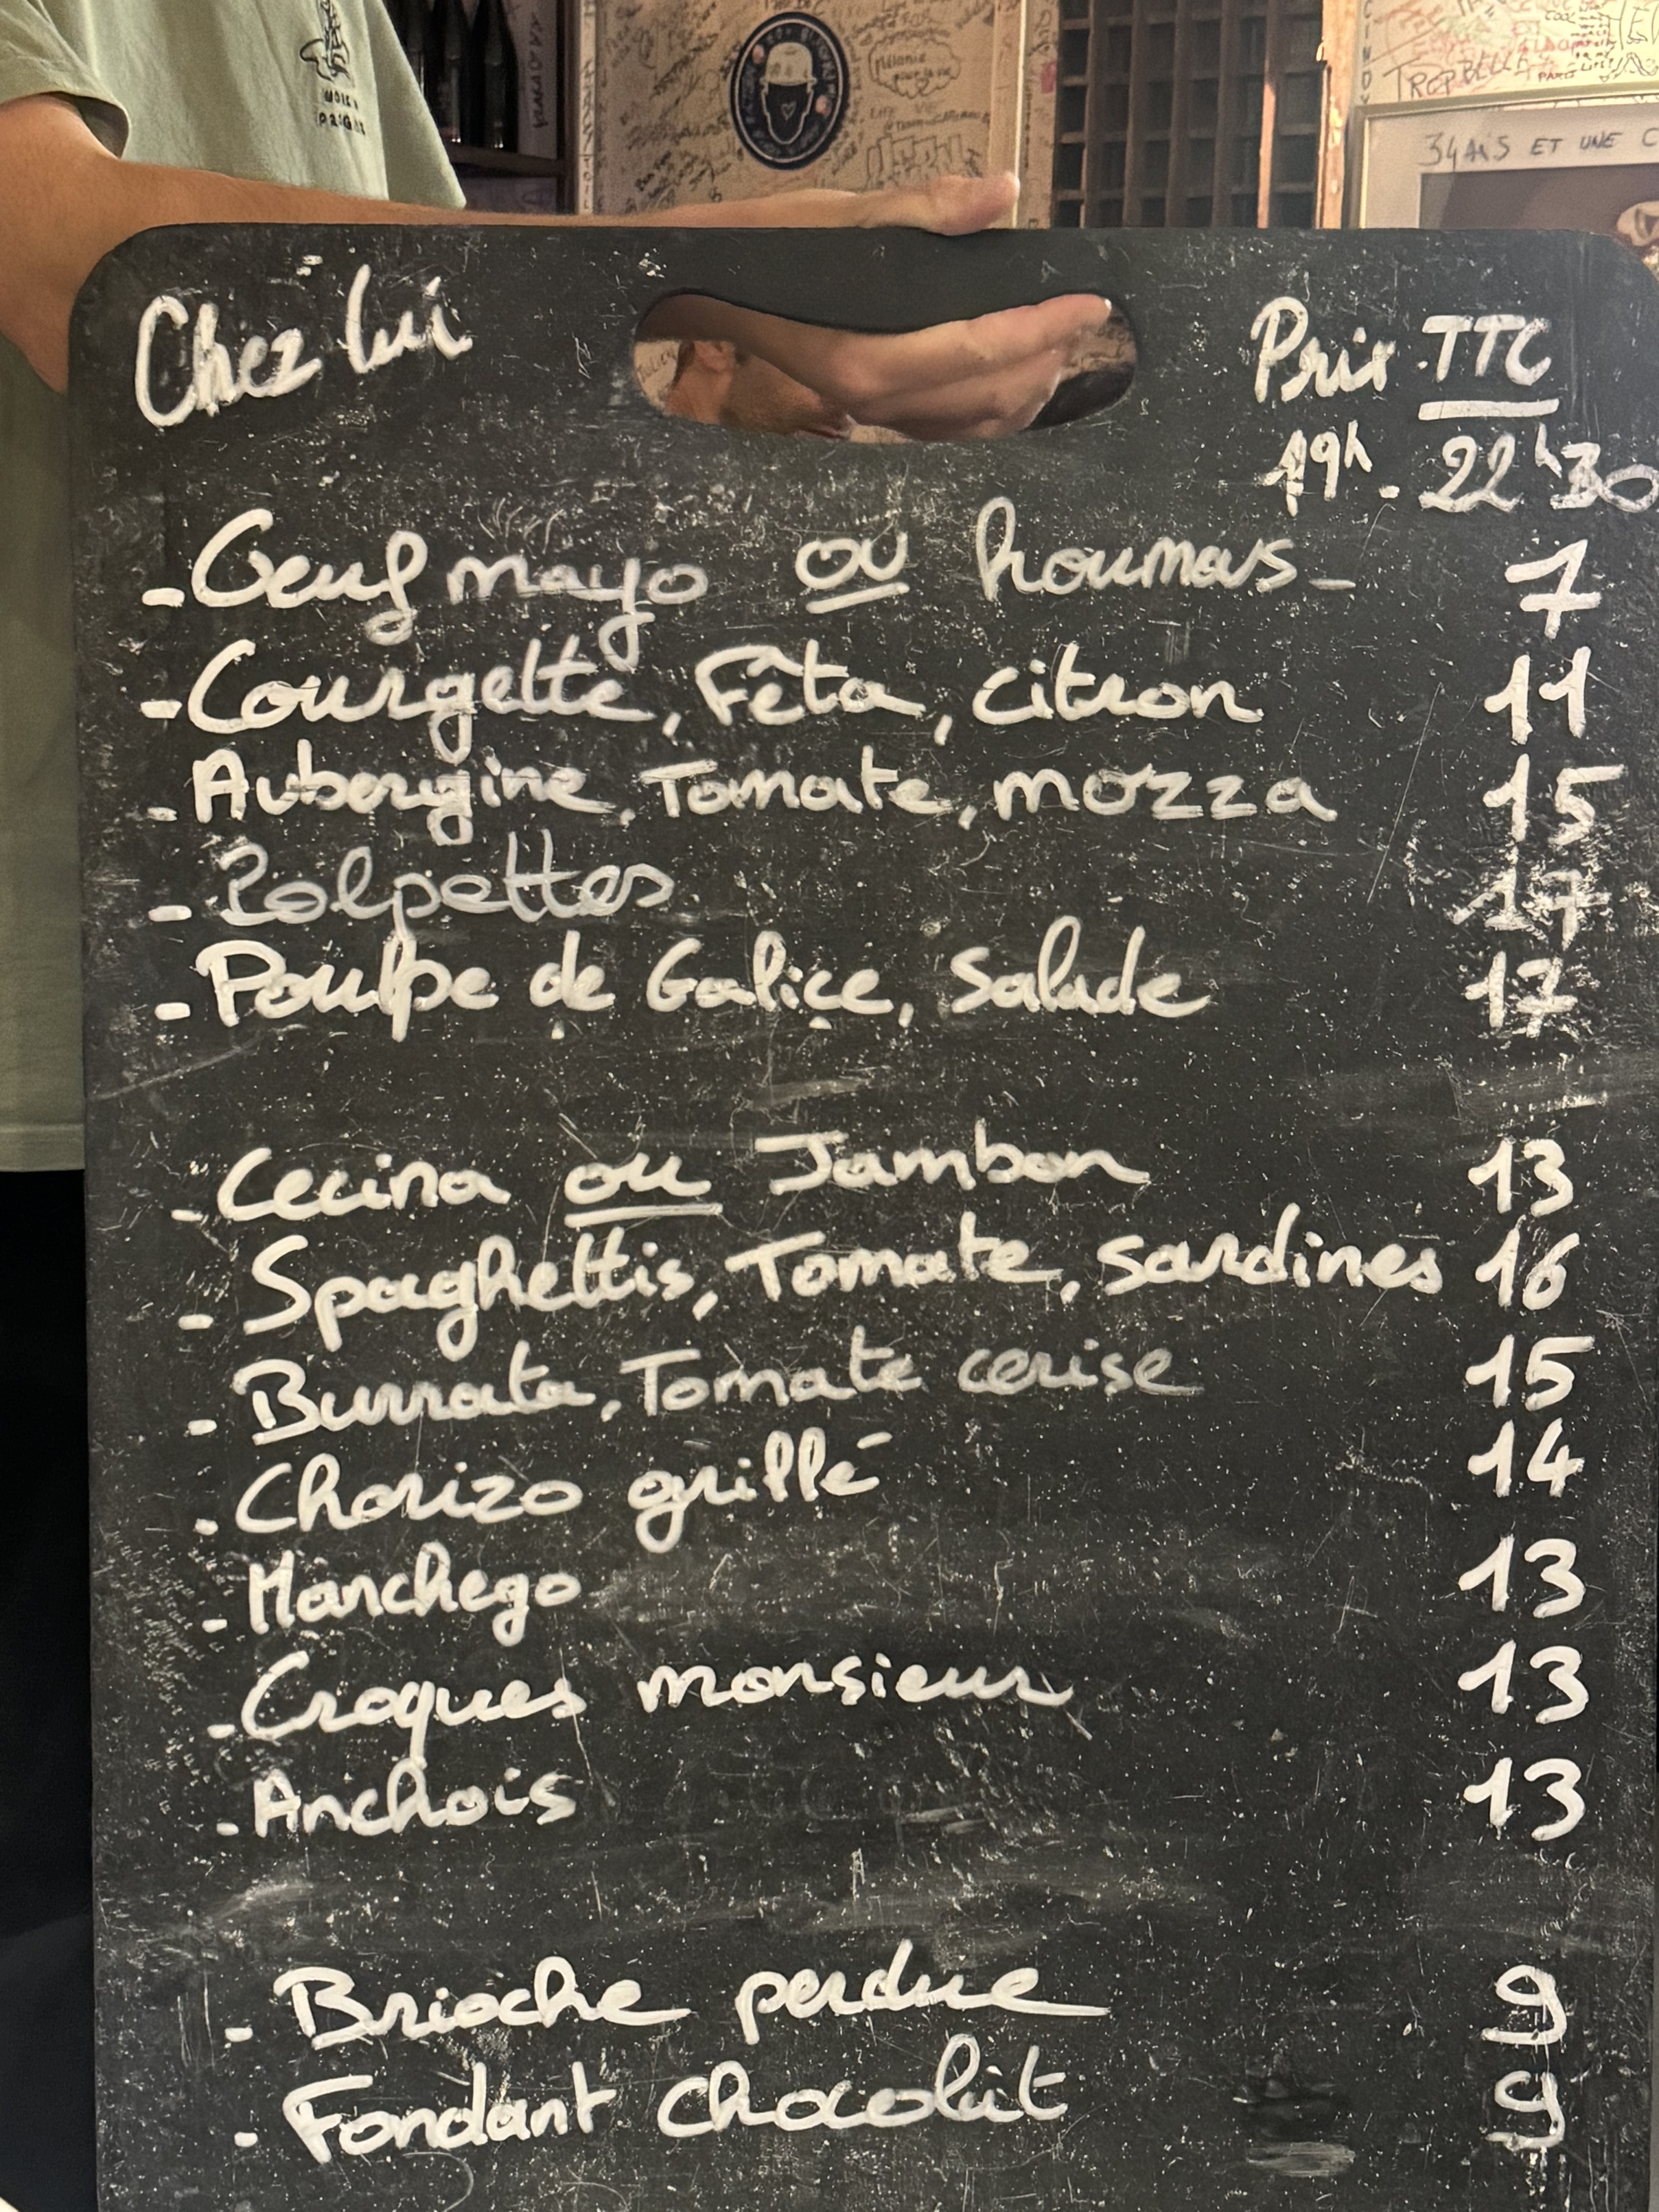 34 ANS ET UNE C
TROP BELLE
Mélanie
Chez lui
Prix TTC
19h - 22h30
- Oeuf mayo ou houmous - 7
- Courgette, Fêta, citron 11
- Aubergine, Tomate, mozza 15
- Polpettes 17
- Poulpe de Galice, Salade 17
- Cecina ou Jambon 13
- Spaghettis, Tomate, sardines 16
- Burrata, Tomate cerise 15
- Chorizo grillé 14
- Manchego 13
- Croques monsieur 13
- Anchois 13
- Brioche perdue 9
- Fondant Chocolat 9